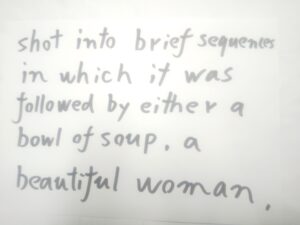 shot into brief sequences
in which it was
followed by either a
bowl of soup. a
beautiful woman.